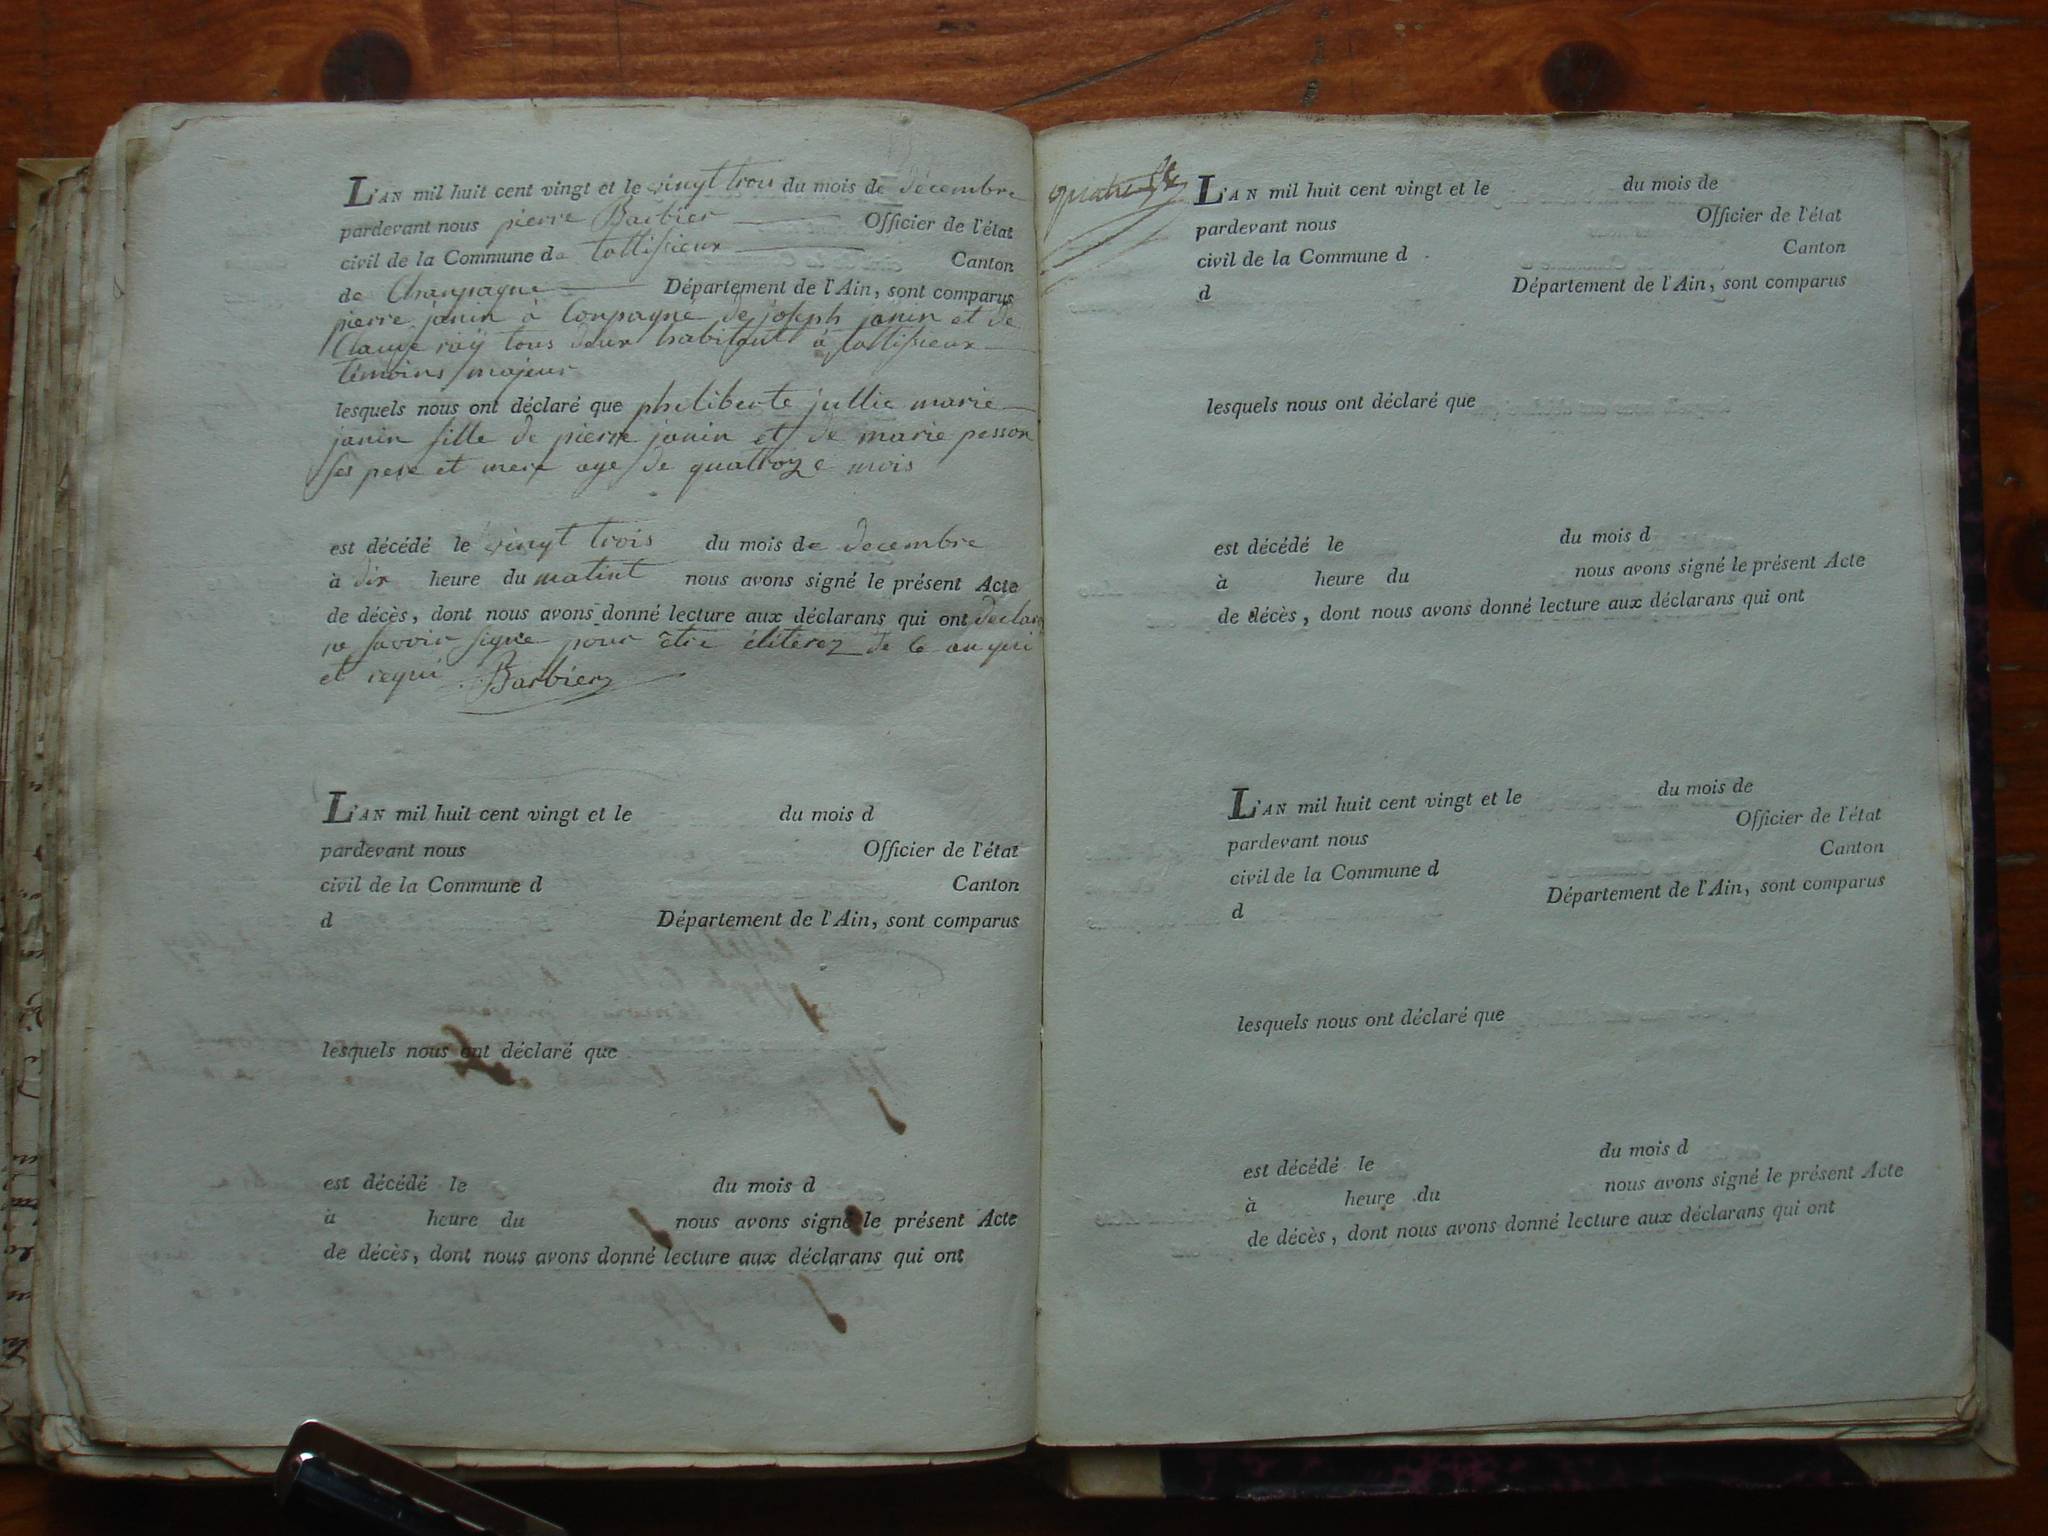 L'AN mil huit cent vingt et le vingt trois du mois de decembre
pardevant nous pierre Barbier Officier de l'état
civil de la Commune de tallissieux Canton
de Champagne Département de l'Ain, sont comparus
pierre janin à Conpagne de joseph janin et de
Claude raÿ tous deux habitant à tallissieux
témoins majeur
lesquels nous ont déclaré que philiberte jullie marie
janin fille de pierre janin et de marie pesson
ses pere et mere age de quattorze mois
est décédé le vingt trois du mois de decembre
à dix heure du matint nous avons signé le présent Acte
de décès, dont nous avons donné lecture aux déclarans qui ont declare
ne savoir signe pour être de ce
et requi Barbier
L'AN mil huit cent vingt et le du mois d
pardevant nous Officier de l'état
civil de la Commune d Canton
d Département de l'Ain, sont comparus
lesquels nous ont déclaré que
est décédé le du mois d
à heure du nous avons signé le présent Acte
de décès, dont nous avons donné lecture aux déclarans qui ont
L'AN mil huit cent vingt et le du mois de
pardevant nous Officier de l'état
civil de la Commune d Canton
d Département de l'Ain, sont comparus
lesquels nous ont déclaré que
est décédé le du mois d
à heure du nous avons signé le présent Acte
de décès, dont nous avons donné lecture aux déclarans qui ont
L'AN mil huit cent vingt et le du mois de
pardevant nous Officier de l'état
civil de la Commune d Canton
d Département de l'Ain, sont comparus
lesquels nous ont déclaré que
est décédé le du mois d
à heure du nous avons signé le présent Acte
de décès, dont nous avons donné lecture aux déclarans qui ont